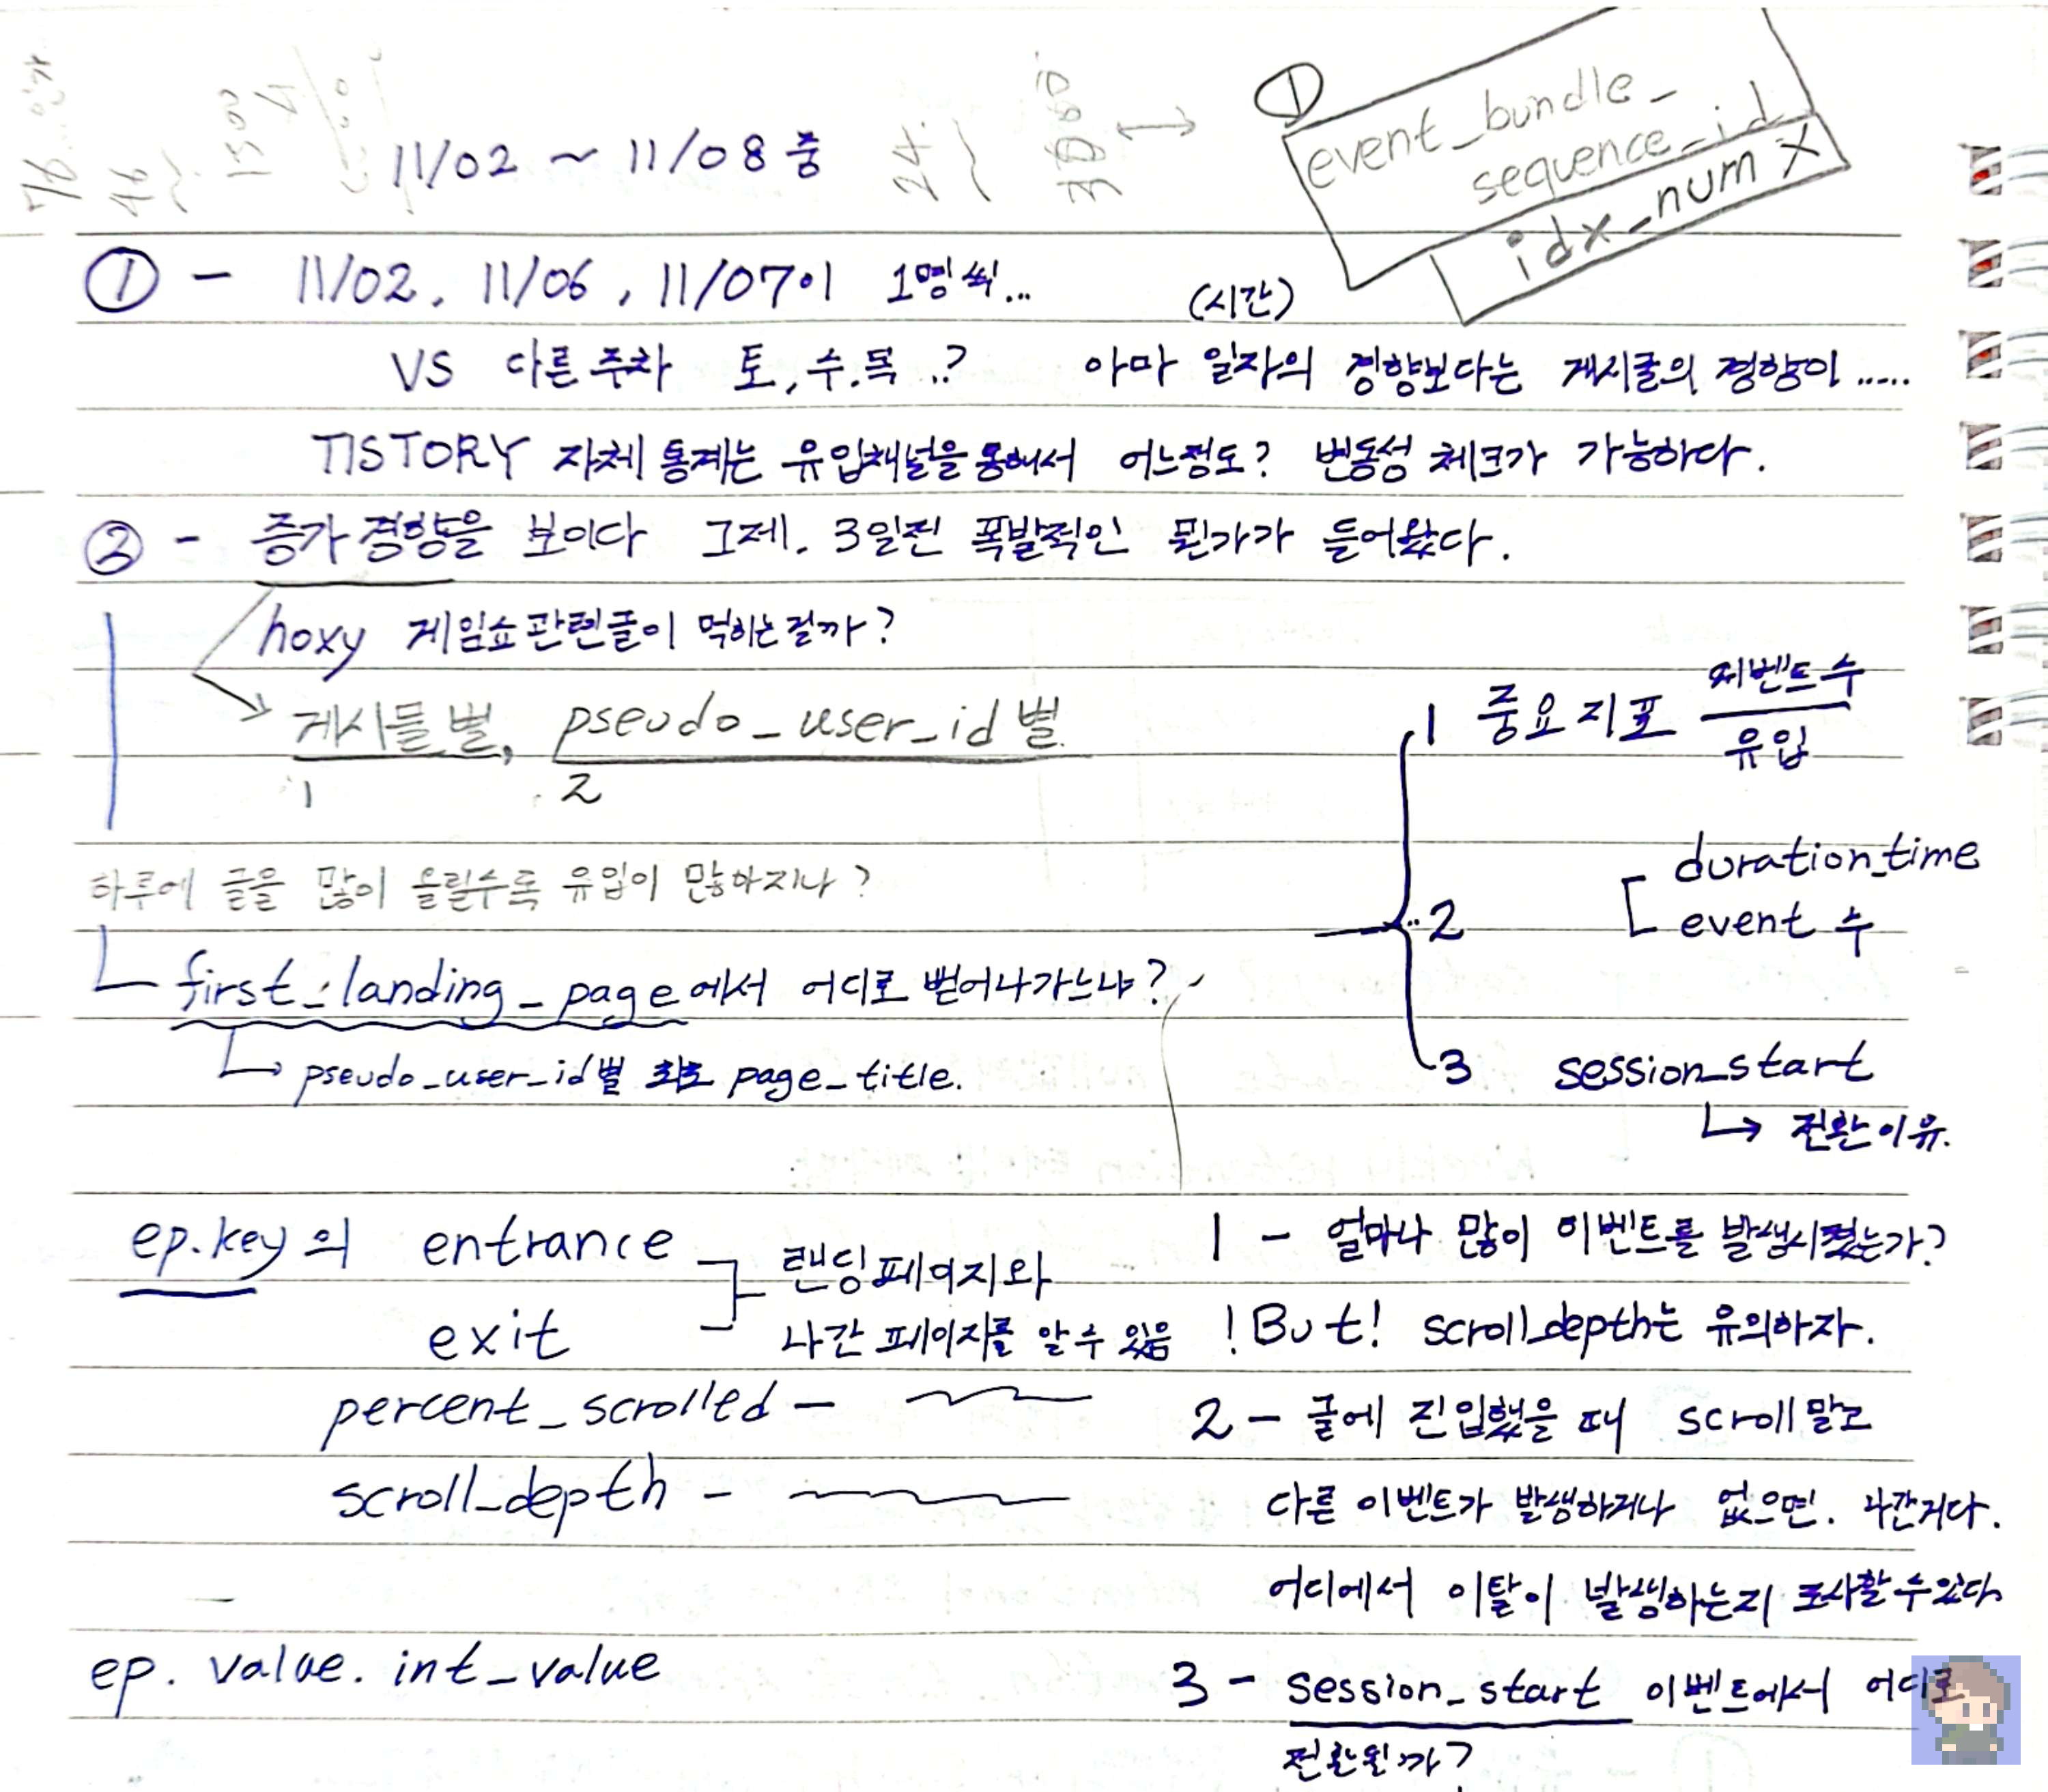 11/02 ~ 11/08 중
①
event_bundle_
sequence_id
idx_num X
① - 11/02, 11/06, 11/07이 1명씩...
(시간)
VS 다른 주차 토,수.목 ..? 아마 일자의 경향보다는 게시글의 경향이 .....
TISTORY 자체 통계는 유입채널을 통해서 어느정도? 변동성 체크가 가능하다.
② - 증가 경향을 보이다 그제. 3일전 폭발적인 뭔가가 들어왔다.
hoxy 게임쇼관련글이 먹히는걸까?
게시들 별, pseudo_user_id 별
1 2
하루에 글을 많이 올릴수록 유입이 많아지나?
first_landing_page에서 어디로 뻗어나가느냐?
pseudo_user_id별 최초 page_title.
1 중요지표 이벤트수
유입
2 duration_time
event 수
3 session_start
전환이유.
ep.key의 entrance
exit
랜딩페이지와
나간 페이지를 알 수 있음
percent_scrolled -
scroll_depth -
ep. value. int_value
1 - 얼마나 많이 이벤트를 발생시켰는가?
!But! scroll_depth는 유의하자.
2 - 글에 진입했을 때 scroll말고
다른 이벤트가 발생하거나 없으면. 나간거다.
어디에서 이탈이 발생하는지 조사할수있다.
3 - session_start 이벤트에서 어디로
전환될까?